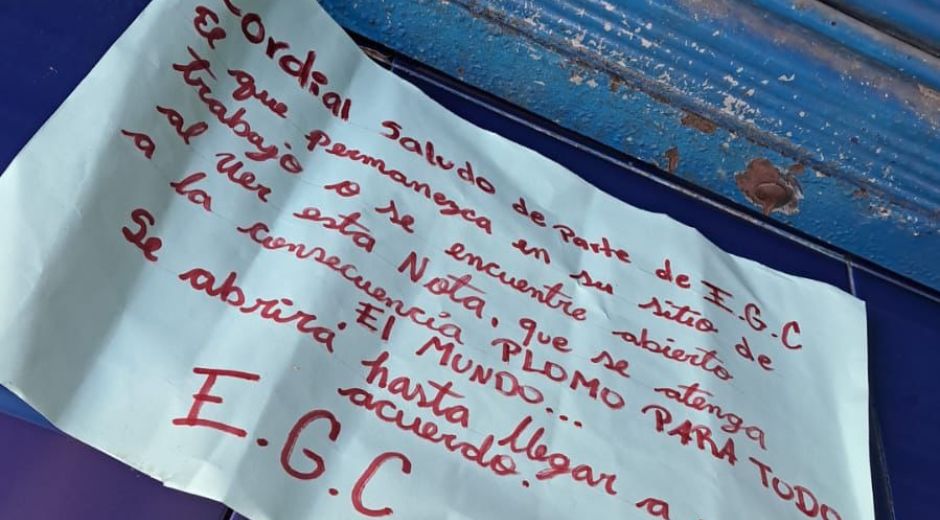 Cordial Saludo de Parte de E.G.C
El que permanezca en su sitio de
trabajo o se encuentre abierto
al ver esta Nota, que se atenga
a la consecuencia PLOMO PARA TODO
El MUNDO...
Se abrirá hasta llegar a
acuerdo.
E.G.C